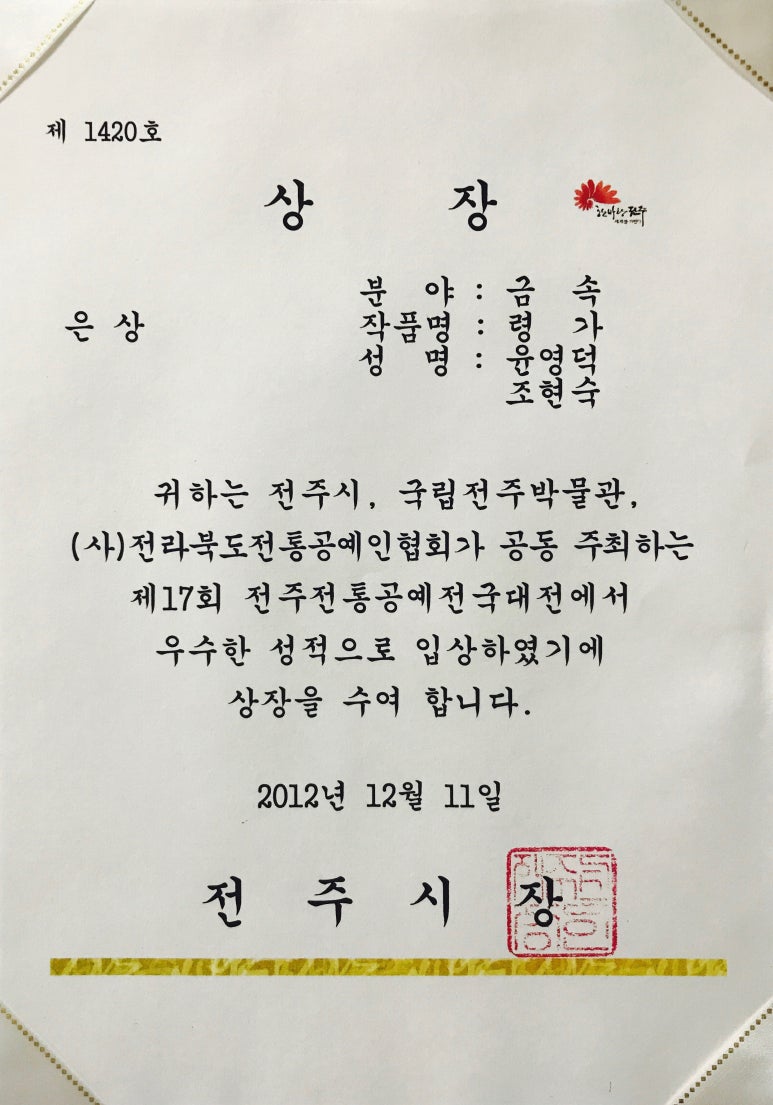 제 1420호
상 장
한바탕전주
분 야 : 금 속
은 상
작품명 : 령 가
성 명 : 윤영덕
조현숙
귀하는 전주시, 국립전주박물관,
(사)전라북도전통공예인협회가 공동 주최하는
제17회 전주전통공예전국대전에서
우수한 성적으로 입상하였기에
상장을 수여 합니다.
2012년 12월 11일
전 주 시 장